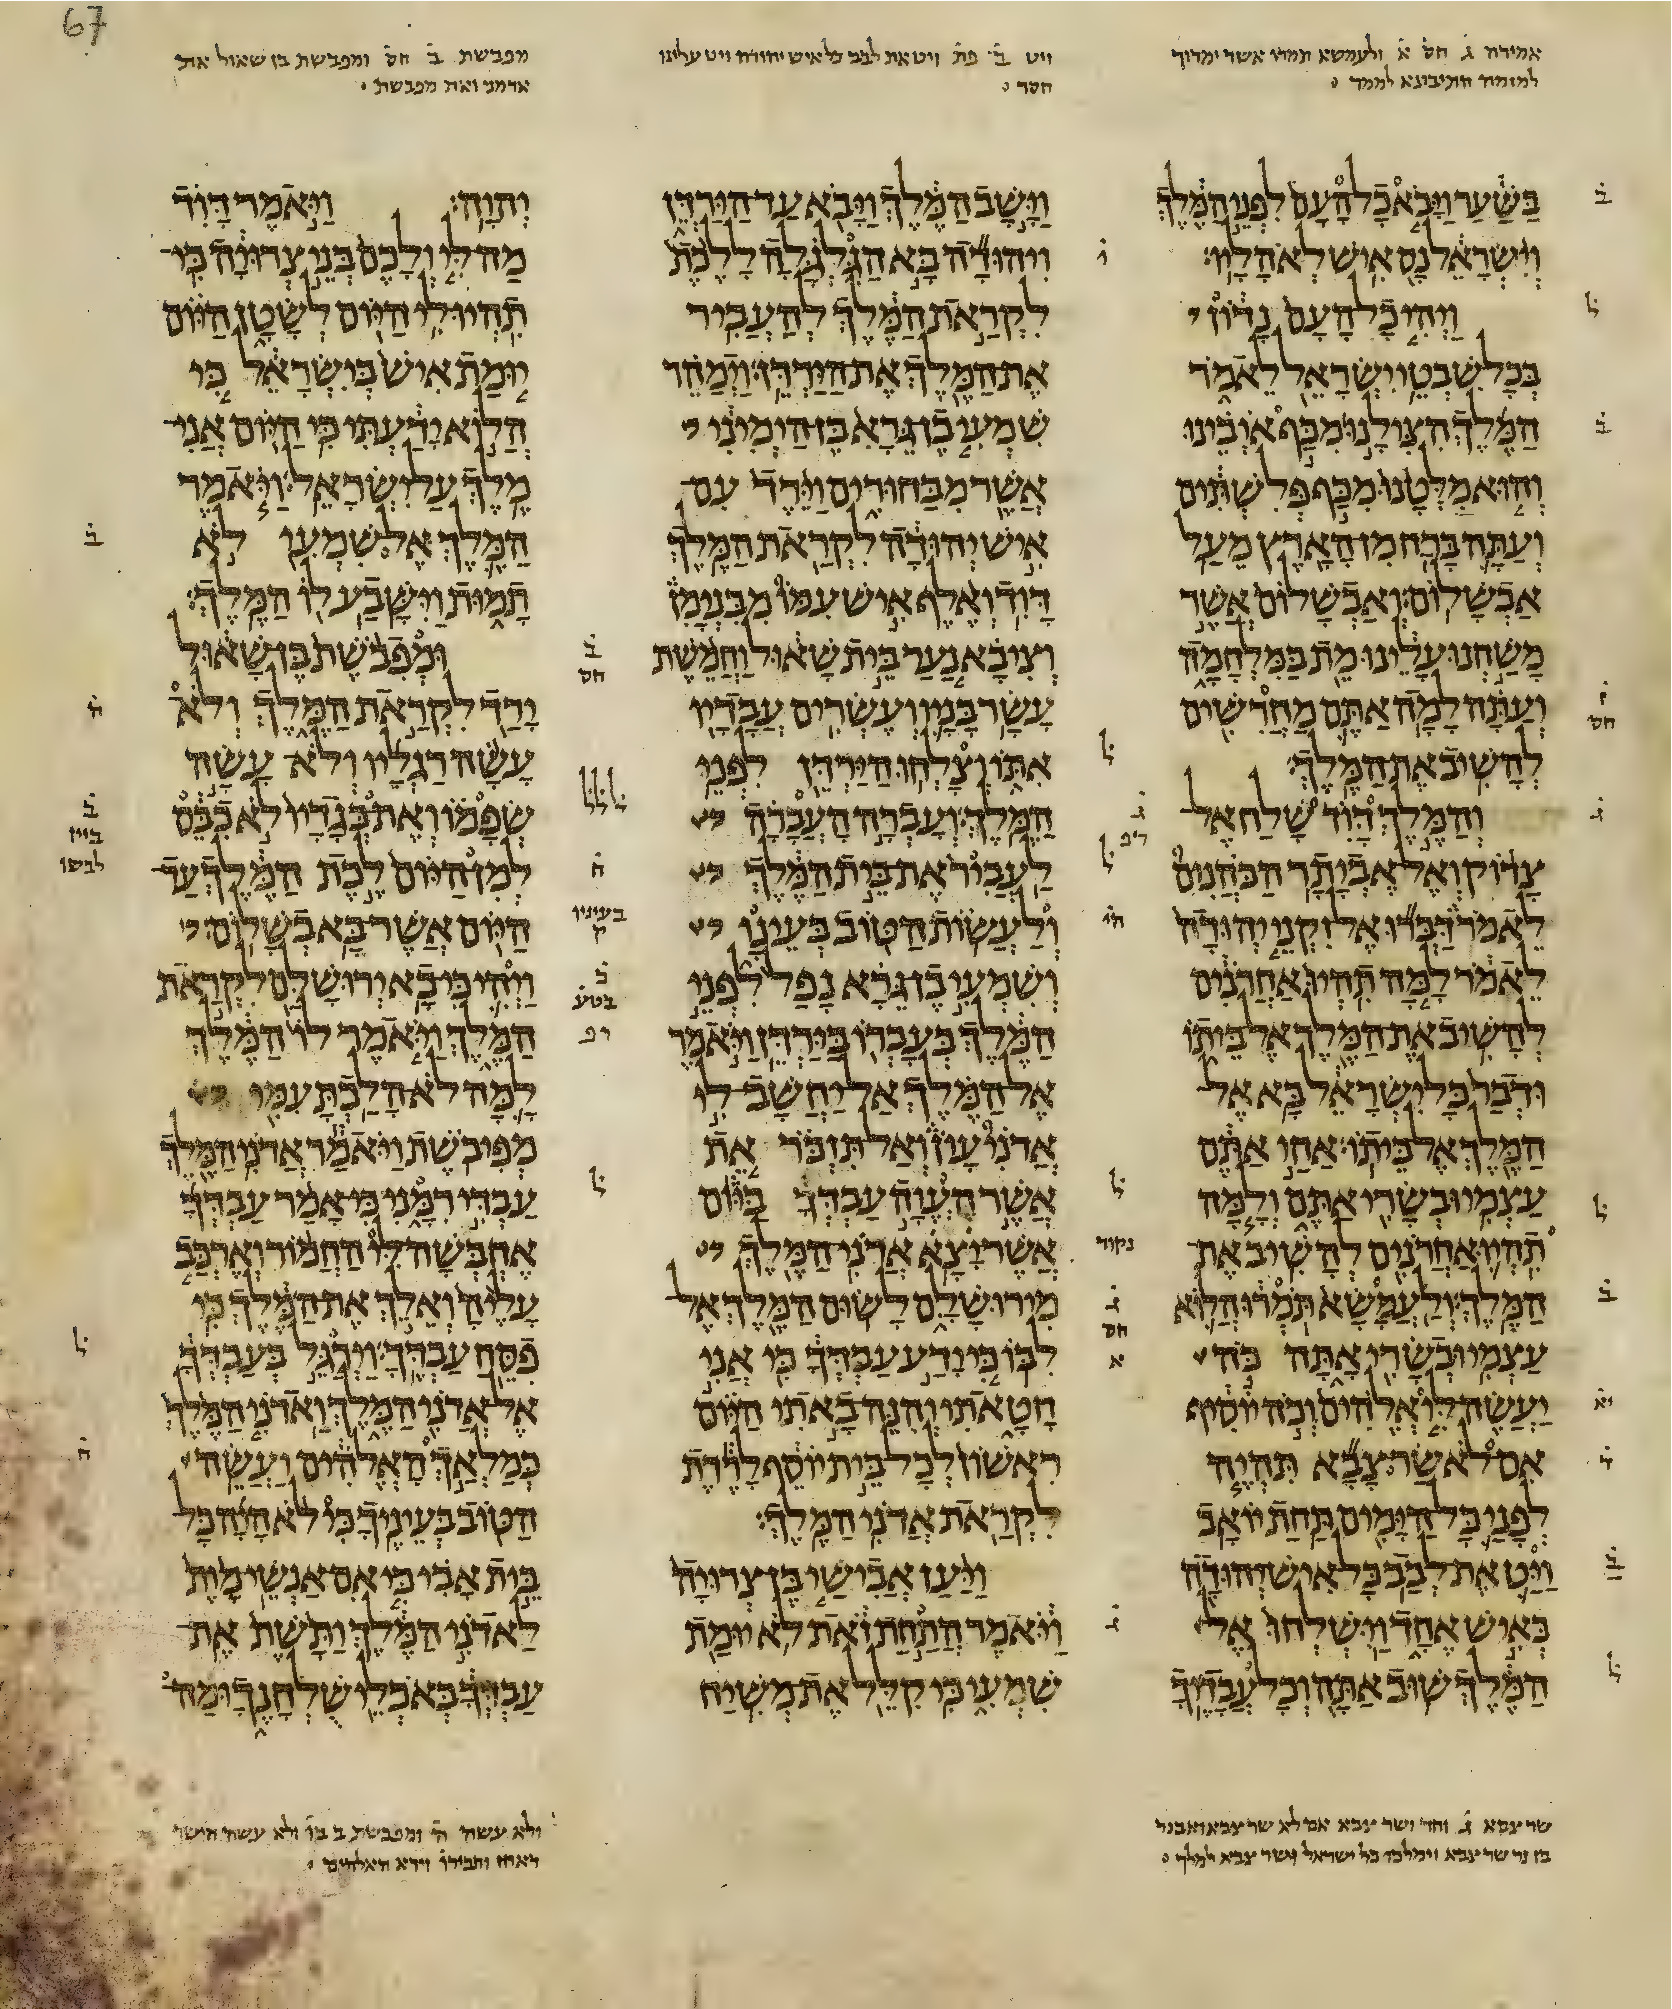 67
ולעמשא תמרו אשר ימרוך
למזמה
ויט ב פת ויט את לבב כל איש יהודה ויט עלינו
חסד
מפבשת ב חס ומפבשת בן שאול את
ארמני ואת מפבשת
בשער ויבא כל העם לפני המלך
וישראל נס איש לאהליו׃
ויהי כל העם נדון
בכל שבטי ישראל לאמר
המלך הצילנו מכף איבינו
והוא מלטנו מכף פלשתים
ועתה ברח מן הארץ מעל
אבשלום׃ ואבשלום אשר
משחנו עלינו מת במלחמה
ועתה למה אתם מחרשים
להשיב את המלך׃
והמלך דוד שלח אל
צדוק ואל אביתר הכהנים
לאמר דברו אל זקני יהודה
לאמר למה תהיו אחרנים
להשיב את המלך אל ביתו
ודבר כל ישראל בא אל
המלך אל ביתו׃ אחי אתם
עצמי ובשרי אתם ולמה
תהיו אחרנים להשיב את
המלך׃ ולעמשא תמרו הלוא
עצמי ובשרי אתה כה
יעשה לי אלהים וכה יוסיף
אם לא שר צבא תהיה
לפני כל הימים תחת יואב׃
ויט את לבב כל איש יהודה
כאיש אחד וישלחו אל
המלך שוב אתה וכל עבדיך׃
וישב המלך ויבא עד הירדן
ויהודה בא הגלגלה ללכת
לקראת המלך להעביר
את המלך את הירדן׃ וימהר
שמעי בן גרא בן הימיני
אשר מבחורים וירד עם
איש יהודה לקראת המלך
דוד׃ ואלף איש עמו מבנימן
וציבא נער בית שאול וחמשת
עשר בניו ועשרים עבדיו
אתו וצלחו הירדן לפני
המלך׃ ועברה העברה
לעביר את בית המלך
ולעשות הטוב בעינו
ושמעי בן גרא נפל לפני
המלך בעברו בירדן׃ ויאמר
אל המלך אל יחשב לי
אדני עון ואל תזכר את
אשר העוה עבדך ביום
אשר יצא אדני המלך
מירושלם לשום המלך אל
לבו׃ כי ידע עבדך כי אני
חטאתי והנה באתי היום
ראשון לכל בית יוסף לרדת
לקראת אדני המלך׃
ויען אבישי בן צרויה
ויאמר התחת זאת לא יומת
שמעי כי קלל את משיח
יהוה׃ ויאמר דוד
מה לי ולכם בני צרויה כי
תהיו לי היום לשטן היום
יומת איש בישראל כי
הלוא ידעתי כי היום אני
מלך על ישראל׃ ויאמר
המלך אל שמעי לא
תמות וישבע לו המלך׃
ומפבשת בן שאול
ירד לקראת המלך ולא
עשה רגליו ולא עשה
שפמו ואת בגדיו לא כבס
למן היום לכת המלך עד
היום אשר בא בשלום׃
ויהי כי בא ירושלם לקראת
המלך ויאמר לו המלך
למה לא הלכת עמי
מפיבשת׃ ויאמר אדני המלך
עבדי רמני כי אמר עבדך
אחבשה לי החמור וארכב
עליה ואלך את המלך כי
פסח עבדך׃ וירגל בעבדך
אל אדני המלך ואדני המלך
כמלאך האלהים ועשה
הטוב בעיניך׃ כי לא היה כל
בית אבי כי אם אנשי מות
לאדני המלך ותשת את
עבדך באכלי שלחנך ומה
ב
ל
ב
ז
חס
ג
ל
ב
יא
ב
ל
ג
ל
נקוד
ג
חס
ב
חס
בעיניו
ק
ל
ב
לבשו
שר צבא ג וחד ושר צבא אם לא שר צבא ואבנר
בן נר שר צבא וימלכו כל ישראל שר צבא למלך
ולא עשה ומפבשת ב בו ולא עשה הישר
וירא האלהים